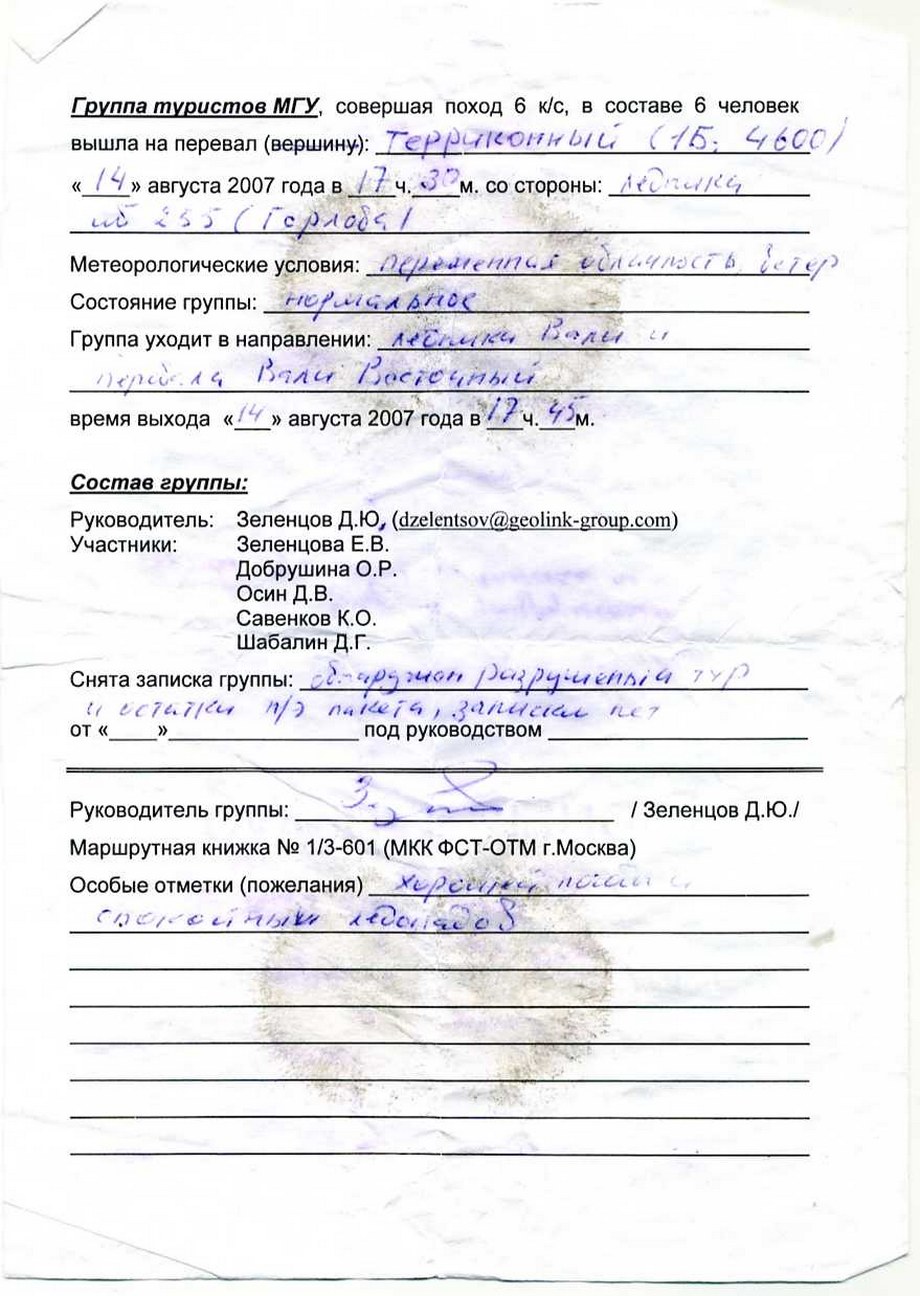 Группа туристов МГУ, совершая поход 6 к/с, в составе 6 человек
вышла на перевал (вершину): Терриконный (1Б, 4600)
«14» августа 2007 года в 17 ч. 30 м. со стороны: ледника
№ 255 (Горлова)
Метеорологические условия: переменная облачность, ветер
Состояние группы: нормальное
Группа уходит в направлении: ледника Вали и
перевала Вали Восточный
время выхода «14» августа 2007 года в 17 ч. 45 м.
Состав группы:
Руководитель: Зеленцов Д.Ю. (dzelentsov@geolink-group.com)
Участники: Зеленцова Е.В.
Добрушина О.Р.
Осин Д.В.
Савенков К.О.
Шабалин Д.Г.
Снята записка группы: обнаружен разрушенный тур
и остатки п/э пакета, записки нет
от «____»________________ под руководством
Руководитель группы: / Зеленцов Д.Ю./
Маршрутная книжка № 1/3-601 (МКК ФСТ-ОТМ г.Москва)
Особые отметки (пожелания) хорошей погоды и
спокойных ледопадов